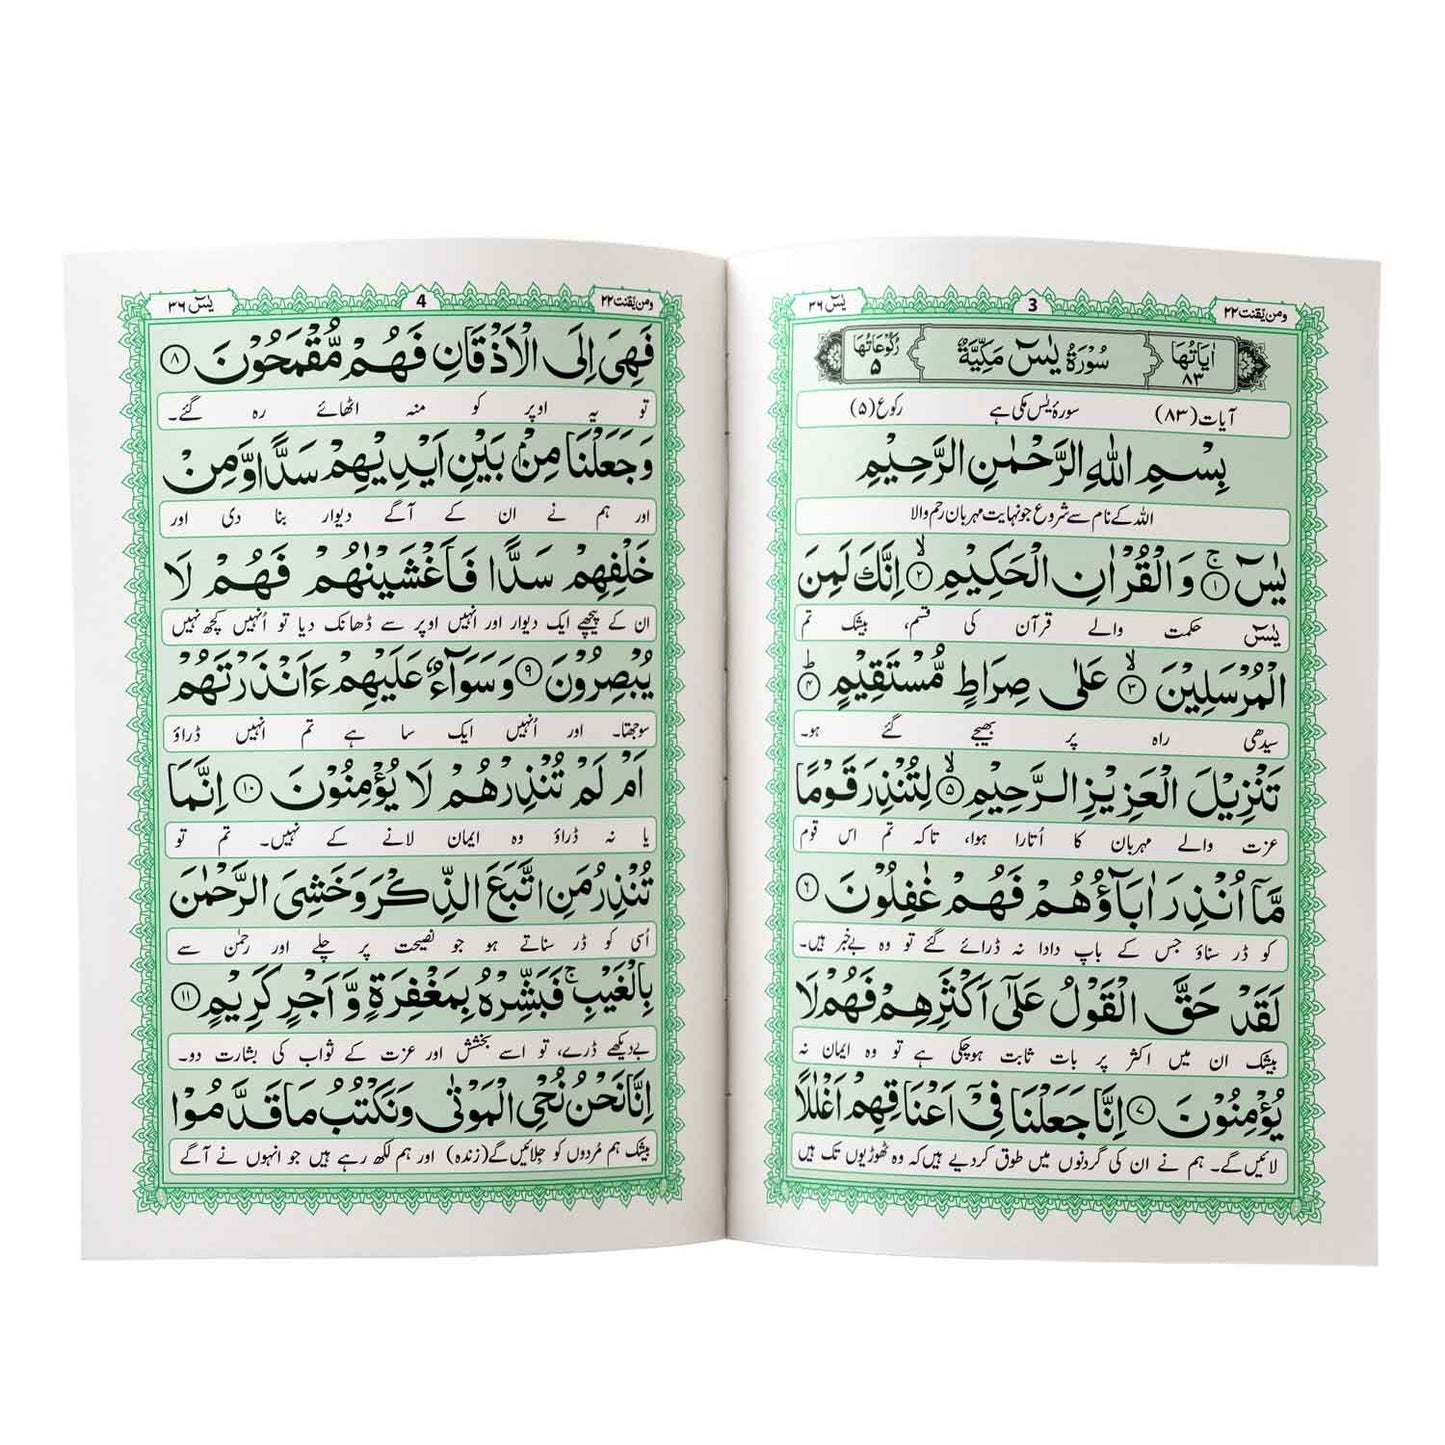 ومن یقنت ۲۲
3
یٰسٓ ۳۶
اٰیَاتُهَا ۸۳
سُوْرَةُ یٰسٓ مَكِّیَّةٌ
رُكُوْعَاتُهَا ۵
آیات (۸۳) سورۂ یٰس مکی ہے رکوع (۵)
بِسْمِ اللّٰهِ الرَّحْمٰنِ الرَّحِیْمِ
اللہ کے نام سے شروع جو نہایت مہربان رحم والا
یٰسٓ ۚ﴿۱﴾ وَ الْقُرْاٰنِ الْحَكِیْمِ ۙ﴿۲﴾ اِنَّكَ لَمِنَ
یٰسٓ حکمت والے قرآن کی قسم، بیشک تم
الْمُرْسَلِیْنَ ۙ﴿۳﴾ عَلٰی صِرَاطٍ مُّسْتَقِیْمٍ ؕ﴿۴﴾
سیدھی راہ پر بھیجے گئے ہو۔
تَنْزِیْلَ الْعَزِیْزِ الرَّحِیْمِ ۙ﴿۵﴾ لِتُنْذِرَ قَوْمًا
عزت والے مہربان کا اُتارا ہوا، تاکہ تم اس قوم
مَّاۤ اُنْذِرَ اٰبَآؤُهُمْ فَهُمْ غٰفِلُوْنَ ﴿۶﴾
کو ڈر سناؤ جس کے باپ دادا نہ ڈرائے گئے تو وہ بےخبر ہیں۔
لَقَدْ حَقَّ الْقَوْلُ عَلٰۤی اَكْثَرِهِمْ فَهُمْ لَا
بیشک ان میں اکثر پر بات ثابت ہوچکی ہے تو وہ ایمان نہ
یُؤْمِنُوْنَ ﴿۷﴾ اِنَّا جَعَلْنَا فِیْۤ اَعْنَاقِهِمْ اَغْلٰلًا
لائیں گے۔ ہم نے ان کی گردنوں میں طوق کردیے ہیں کہ وہ ٹھوڑیوں تک ہیں
ومن یقنت ۲۲
4
یٰسٓ ۳۶
فَهِیَ اِلَی الْاَذْقَانِ فَهُمْ مُّقْمَحُوْنَ ﴿۸﴾
تو یہ اوپر کو منہ اٹھائے رہ گئے۔
وَ جَعَلْنَا مِنْۢ بَیْنِ اَیْدِیْهِمْ سَدًّا وَّ مِنْ
اور ہم نے ان کے آگے دیوار بنا دی اور
خَلْفِهِمْ سَدًّا فَاَغْشَیْنٰهُمْ فَهُمْ لَا
ان کے پیچھے ایک دیوار اور انہیں اوپر سے ڈھانک دیا تو اُنہیں کچھ نہیں
یُبْصِرُوْنَ ﴿۹﴾ وَ سَوَآءٌ عَلَیْهِمْ ءَاَنْذَرْتَهُمْ
سوجھتا۔ اور اُنہیں ایک سا ہے تم انہیں ڈراؤ
اَمْ لَمْ تُنْذِرْهُمْ لَا یُؤْمِنُوْنَ ﴿۱۰﴾ اِنَّمَا
یا نہ ڈراؤ وہ ایمان لانے کے نہیں۔ تم تو
تُنْذِرُ مَنِ اتَّبَعَ الذِّكْرَ وَ خَشِیَ الرَّحْمٰنَ
اُسی کو ڈر سناتے ہو جو نصیحت پر چلے اور رحمٰن سے
بِالْغَیْبِ ۚ فَبَشِّرْهُ بِمَغْفِرَةٍ وَّ اَجْرٍ كَرِیْمٍ ﴿۱۱﴾
بےدیکھے ڈرے، تو اسے بخشش اور عزت کے ثواب کی بشارت دو۔
اِنَّا نَحْنُ نُحْیِ الْمَوْتٰی وَ نَكْتُبُ مَا قَدَّمُوْا
بیشک ہم مُردوں کو جِلائیں گے (زندہ) اور ہم لکھ رہے ہیں جو انہوں نے آگے